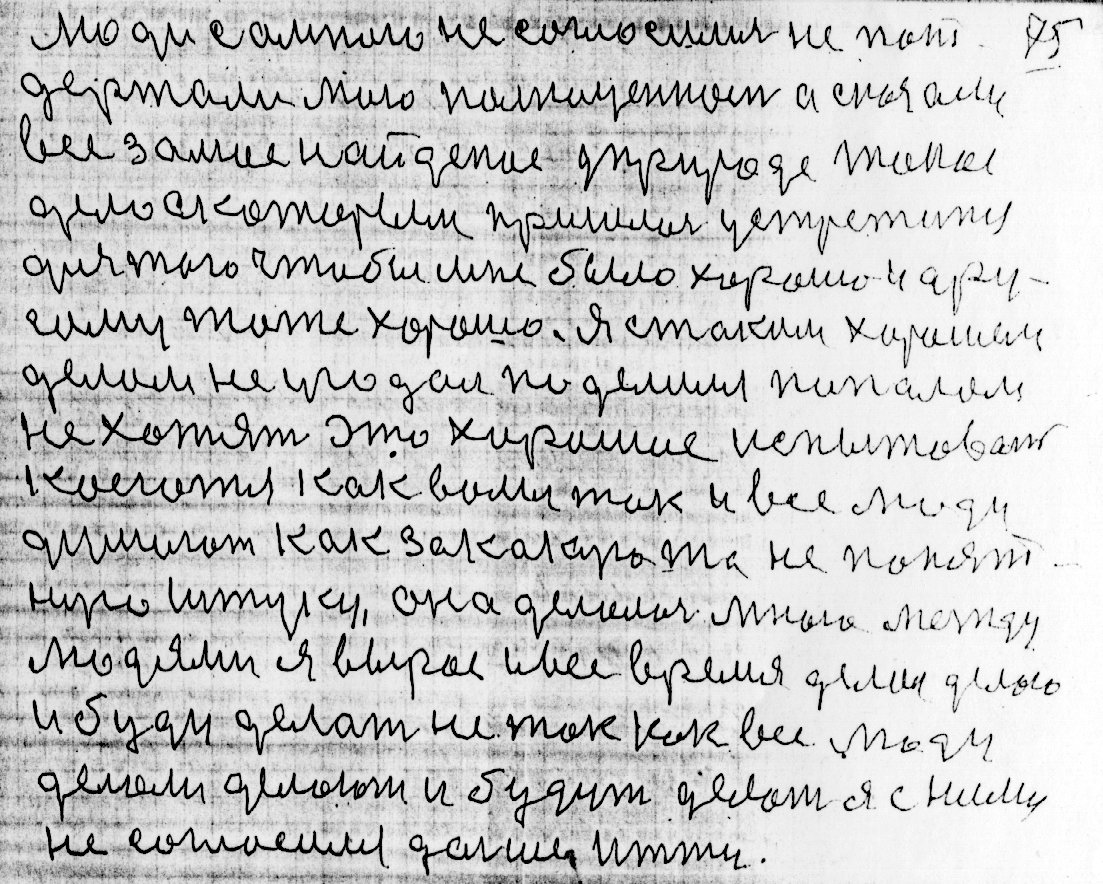 Люди самного несоглосилися не пот 75
держали мого полноценност а сночали
все замое найденое уприроде токое
дело скоторем пришлося устретитя
для того чтобы мне было хорошо и дру-
гому тоже хорошо. Я стаким хорошем
делом не угодал поделился пополам
не хотят это хорошее испытоват
Косаютя как вомя ток и все люди
думолот как за какуюта не понят-
ную штуку, она делолося много между
людями я вырос и все время делал делою
и буду делат не ток как все люди
делоли делоют и будут делат я с ними
не согласился далше итти.